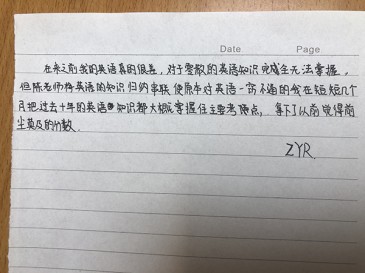 Date Page
在来之前我的英语真的很差，对于零散的英语知识完全无法掌握，
但陈老师将英语的知识归纳串联使原本对英语一窍不通的我在短短几个
月把过去十年的英语知识都大概掌握住主要考点，拿下了以前觉得望
尘莫及的分数。
ZYR